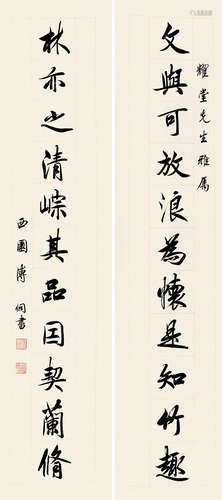 耀堂先生雅属
文與可放浪為懷是知竹趣
林亦之清崇其品因契蘭脩
西園溥侗書